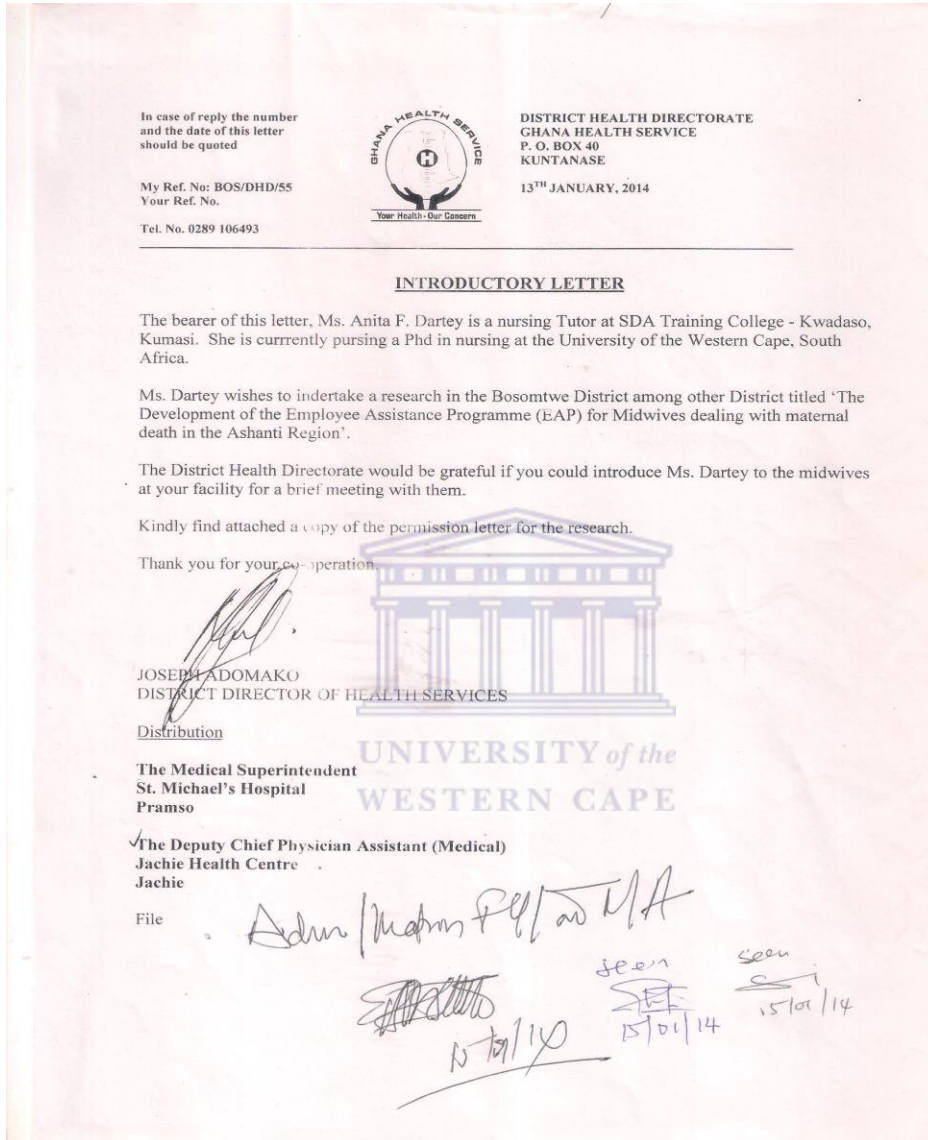 In case of reply the number
and the date of this letter
should be quoted
My Ref. No: BOS/DHD/55
Your Ref. No.
Tel. No. 0289 106493
GHANA HEALTH SERVICE
H
Your Health - Our Concern
DISTRICT HEALTH DIRECTORATE
GHANA HEALTH SERVICE
P. O. BOX 40
KUNTANASE
13TH JANUARY, 2014
INTRODUCTORY LETTER
The bearer of this letter, Ms. Anita F. Dartey is a nursing Tutor at SDA Training College - Kwadaso,
Kumasi. She is currrently pursing a Phd in nursing at the University of the Western Cape, South
Africa.
Ms. Dartey wishes to indertake a research in the Bosomtwe District among other District titled ‘The
Development of the Employee Assistance Programme (EAP) for Midwives dealing with maternal
death in the Ashanti Region’.
The District Health Directorate would be grateful if you could introduce Ms. Dartey to the midwives
at your facility for a brief meeting with them.
Kindly find attached a copy of the permission letter for the research.
Thank you for your co-operation.
JOSEPH ADOMAKO
DISTRICT DIRECTOR OF HEALTH SERVICES
Distribution
UNIVERSITY of the
WESTERN CAPE
The Medical Superintendent
St. Michael's Hospital
Pramso
The Deputy Chief Physician Assistant (Medical)
Jachie Health Centre
Jachie
File
seen
15/01/14
seen
15/01/14